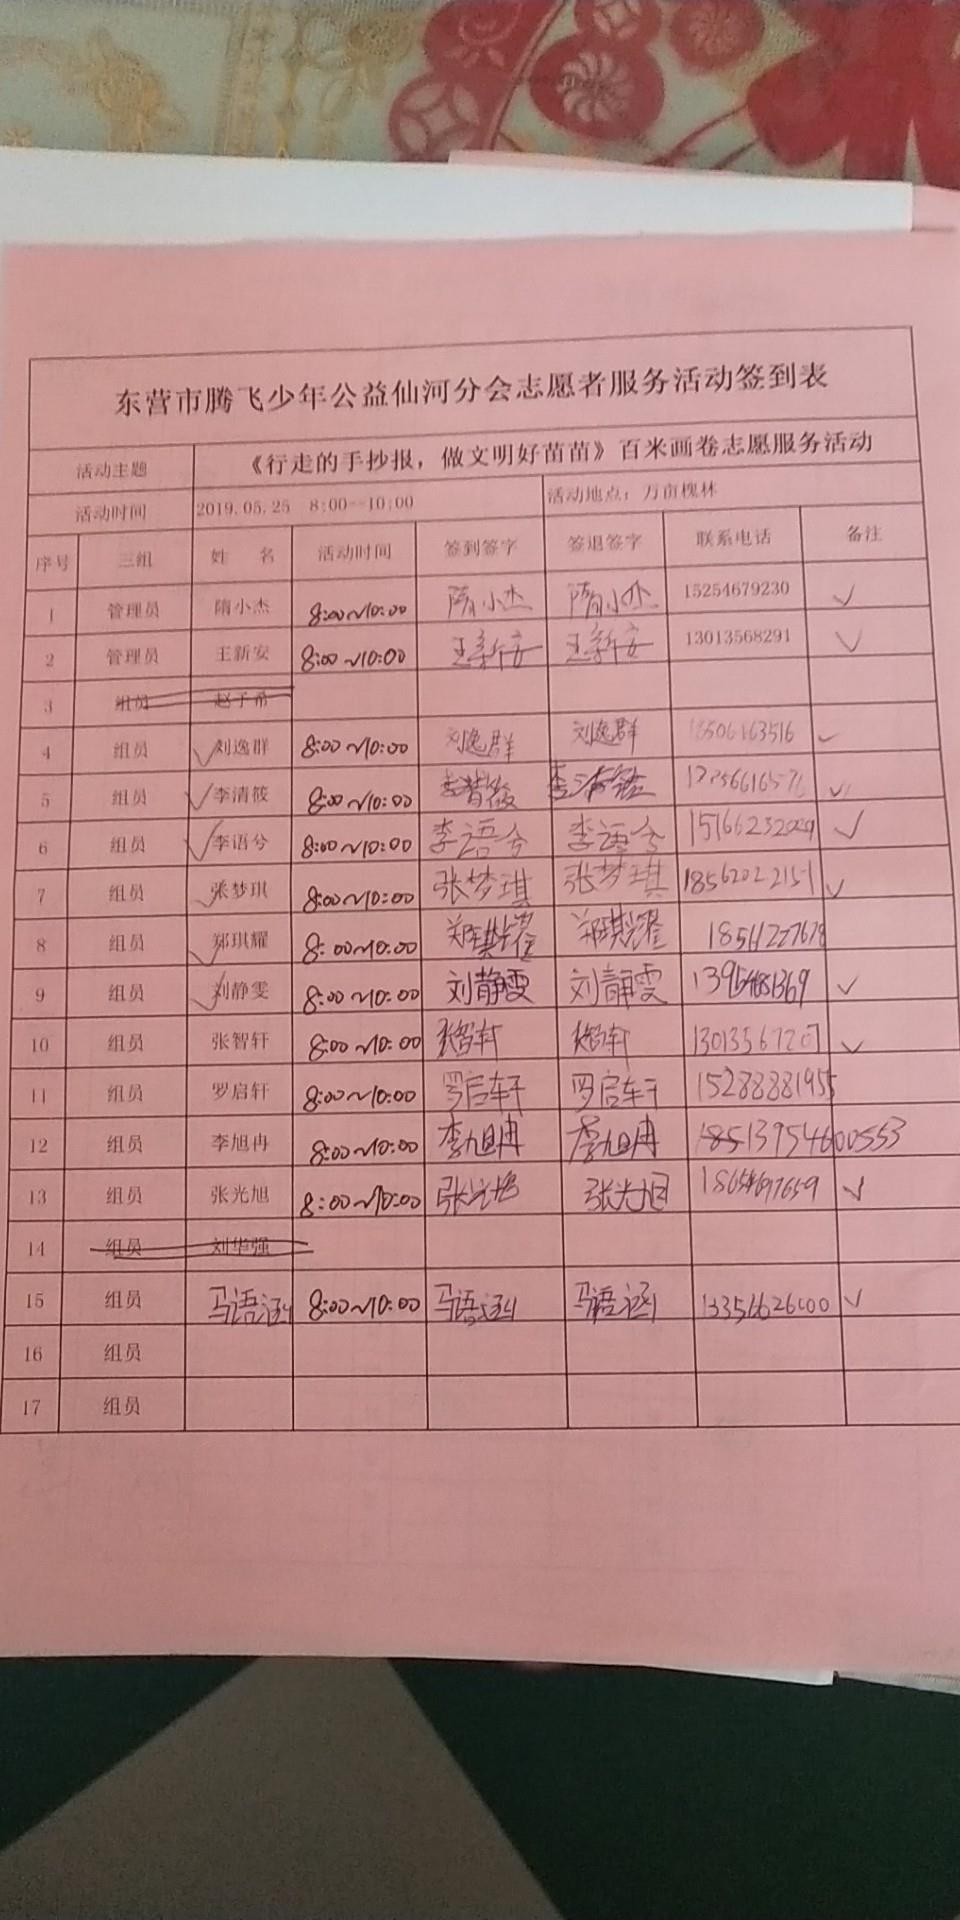 东营市腾飞少年公益仙河分会志愿者服务活动签到表
活动主题 《行走的手抄报，做文明好苗苗》百米画卷志愿服务活动
活动时间 2019.05.25 8:00--10:00 活动地点：万亩槐林
序号 三组 姓 名 活动时间 签到签字 签退签字 联系电话 备注
1 管理员 隋小杰 8:00~10:00 隋小杰 隋小杰 15254679230 ✓
2 管理员 王新安 8:00~10:00 王新安 王新安 13013568291 ✓
3 组员 赵子希
4 组员 ✓刘逸群 8:00~10:00 刘逸群 刘逸群 ✓
5 组员 ✓李清筱 8:00~10:00 李清筱 李清筱 ✓
6 组员 ✓李语兮 8:00~10:00 李语兮 李语兮 ✓
7 组员 ✓张梦琪 8:00~10:00 张梦琪 张梦琪 18562022151 ✓
8 组员 ✓郑琪耀 8:00~10:00 郑琪耀 郑琪耀
9 组员 ✓刘静雯 8:00~10:00 刘静雯 刘静雯 ✓
10 组员 张智轩 8:00~10:00 张智轩 张智轩 13013567207 ✓
11 组员 罗启轩 8:00~10:00 罗启轩 罗启轩 15288881955
12 组员 李旭冉 8:00~10:00 李旭冉 李旭冉 13954600553
13 组员 张光旭 8:00~10:00 张光旭 张光旭 18654697659 ✓
14 组员 刘华强
15 组员 马语涵 8:00~10:00 马语涵 马语涵 13356626000 ✓
16 组员
17 组员